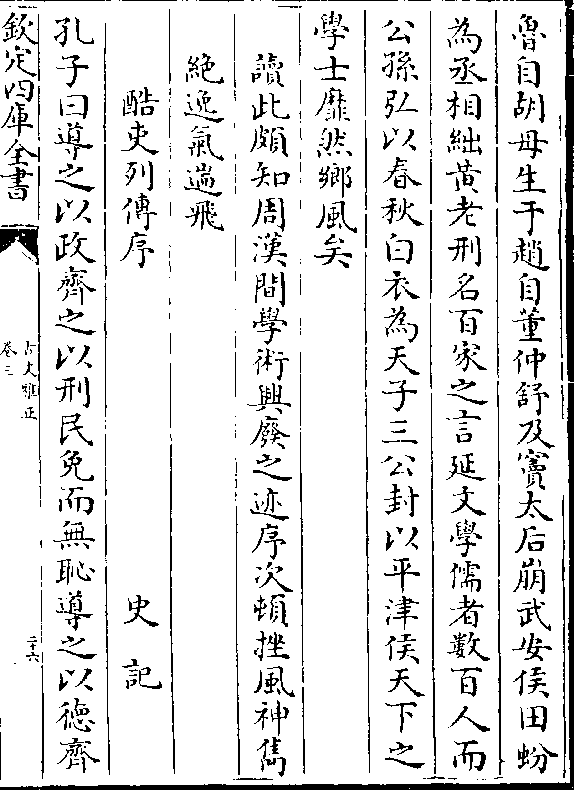 魯自胡母生于趙自董仲舒及竇太后崩武安侯田蚡
為丞相絀黃老刑名百家之言延文學儒者數百人而
公孫弘以春秋白衣為天子三公封以平津侯天下之
學士靡然鄉風矣
讀此頗知周漢間學術興廢之迹序次頓挫風神雋
絶逸氣遄飛
酷吏列傳序　史記
孔子曰導之以政齊之以刑民免而無恥導之以德齊
欽定四庫全書
古文雅正
卷三
二十六